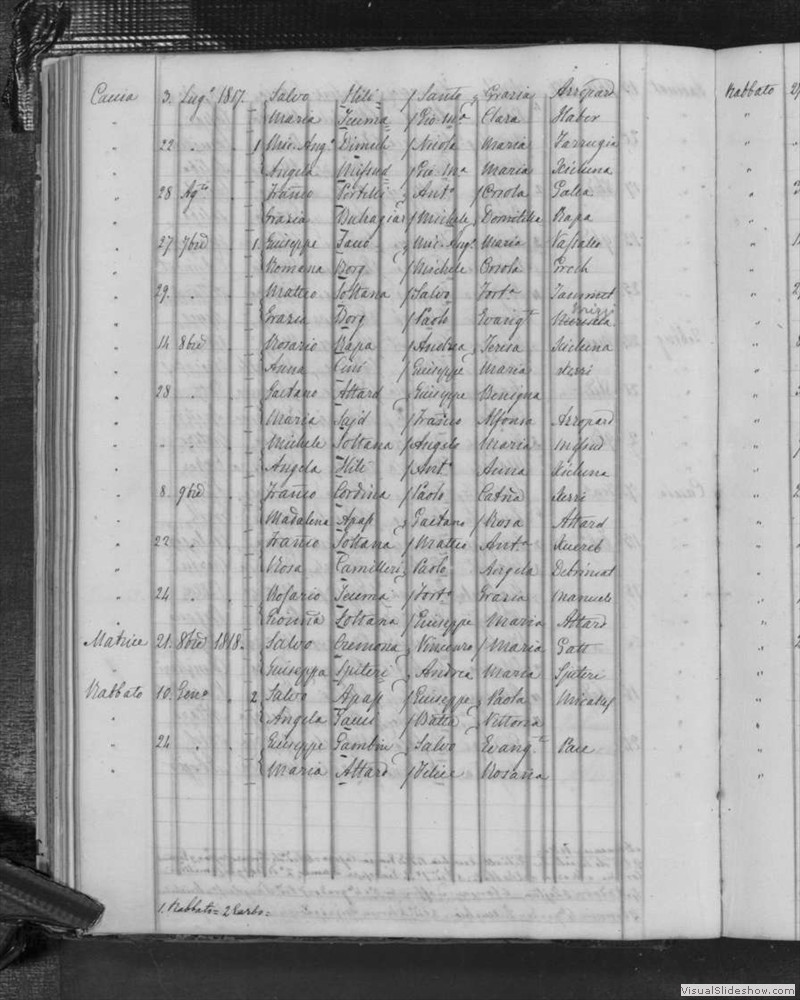 Caccia 3. Lug.º 1817. Salvo Hili Santo Grazia Arropard
" Maria Teuma Pio Mª Clara Haber
" 22 . . 1 Mic. Ang.º Dimech Nicola Maria Farrugia
" Angela Mifsud Pio Mª Maria Xicluna
" 28 Ag.to Franco Portelli Ant.º Orsola Galea
" Grazia Buhagiar Michele Domitilla Rapa
" 27 7bre . 1. Giuseppe Tabo Mic. Ang.º Maria Vassallo
" Romana Borg Michele Orsola Grech
" 29. . . Matteo Soltana Salvo Fort.ª
" Grazia Borg Paolo Evang.ta
" 14 8bre Rosario Rapa Andrea Teresa Xicluna
" Anna Cini Giuseppe Maria Xerri
" 28 . . Gaetano Attard Giuseppe Benigna
" Maria Sajd Franco Alfonsa Arropard
" . . . Michele Soltana Angelo Maria Mifsud
" Angela Hili Ant.º Anna Xicluna
" 8. 9bre Franco Cordina Paolo Catna Xerri
" Madalena Apap Gaetano Rosa Attard
" 22 . . Franco Soltana Matteo Ant.ª Xuereb
" Rosa Camilleri Paolo Angela Debrincat
" 24 . . Rosario Teuma Fort.º Grazia Manuele
" Gioanna Soltana Giuseppe Maria Attard
Matrice 21. 8bre 1818. Salvo Cremona Vincenzo Maria Gatt
" Giuseppa Spiteri Andrea Maria Spiteri
Rabbato 10. Gen.º . 2 Salvo Apap Giuseppe Paola Micallef
" Angela Batta Vittoria
" 24 . . Giuseppe Gambin Salvo Evang.ta Pace
" Maria Attard Felice Rosaria
1. Rabbato = 2 Garbo =
Rabbato
VisualSlideshow.com